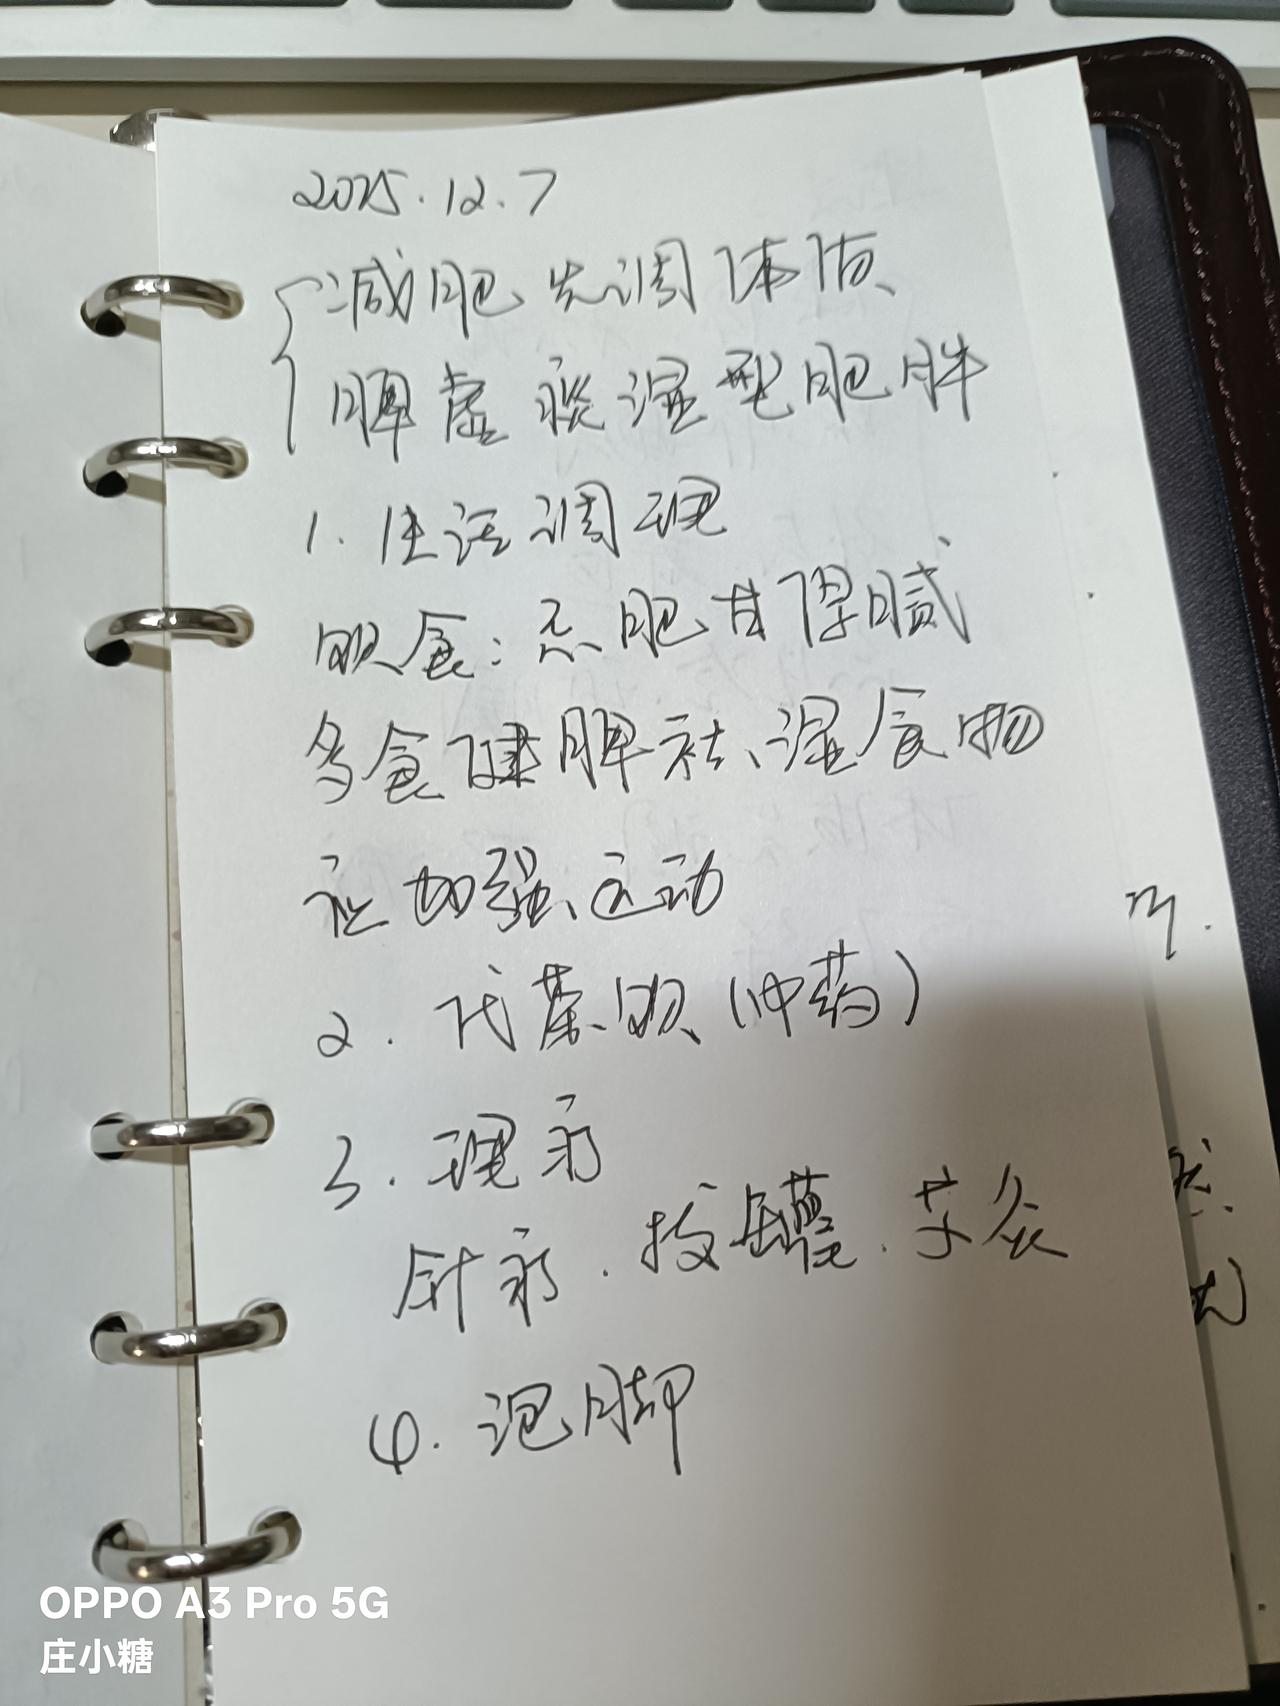 2025.12.7
减肥先调体质、
脾虚痰湿型肥胖
1. 生活调理
饮食：忌肥甘厚腻
多食健脾祛湿食物
应加强运动
2. 代茶饮（中药）
3. 理疗
针疗．拔罐．艾灸
4. 泡脚
OPPO A3 Pro 5G
庄小糖